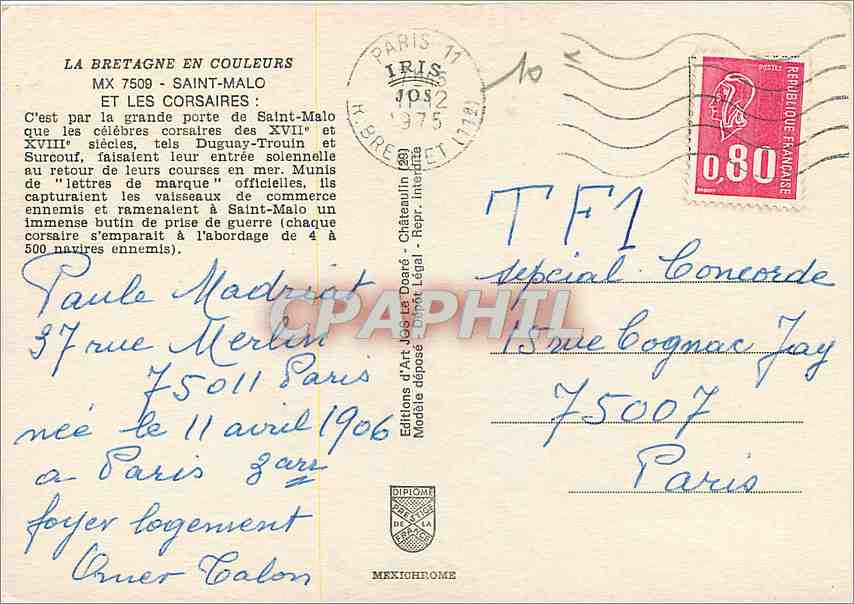 LA BRETAGNE EN COULEURS
MX 7509 - SAINT-MALO
ET LES CORSAIRES :
C'est par la grande porte de Saint-Malo
que les célèbres corsaires des XVIIe et
XVIIIe siècles, tels Duguay-Trouin et
Surcouf, faisaient leur entrée solennelle
au retour de leurs courses en mer. Munis
de "lettres de marque" officielles, ils
capturaient les vaisseaux de commerce
ennemis et ramenaient à Saint-Malo un
immense butin de prise de guerre (chaque
corsaire s'emparait à l'abordage de 4 à
500 navires ennemis).
Paule Madriat
37 rue Merlin
75011 Paris
née le 11 avril 1906
a Paris 3arr
foyer logement
Omer Talon
PARIS 11
IRIS
JOS
12
1975
R. BREGUET (112)
10
POSTES
REPUBLIQUE FRANÇAISE
0,80
TF1
sepcial Concorde
15 rue Cognac Jay
75007
Paris
Editions d'Art JOS Le Doaré - Châteaulin (29)
Modèle déposé - Dépôt Légal - Repr. interdite
CPAPHIL
DIPLOME
PRESTIGE
DE LA
FRANCE
MEXICHROME